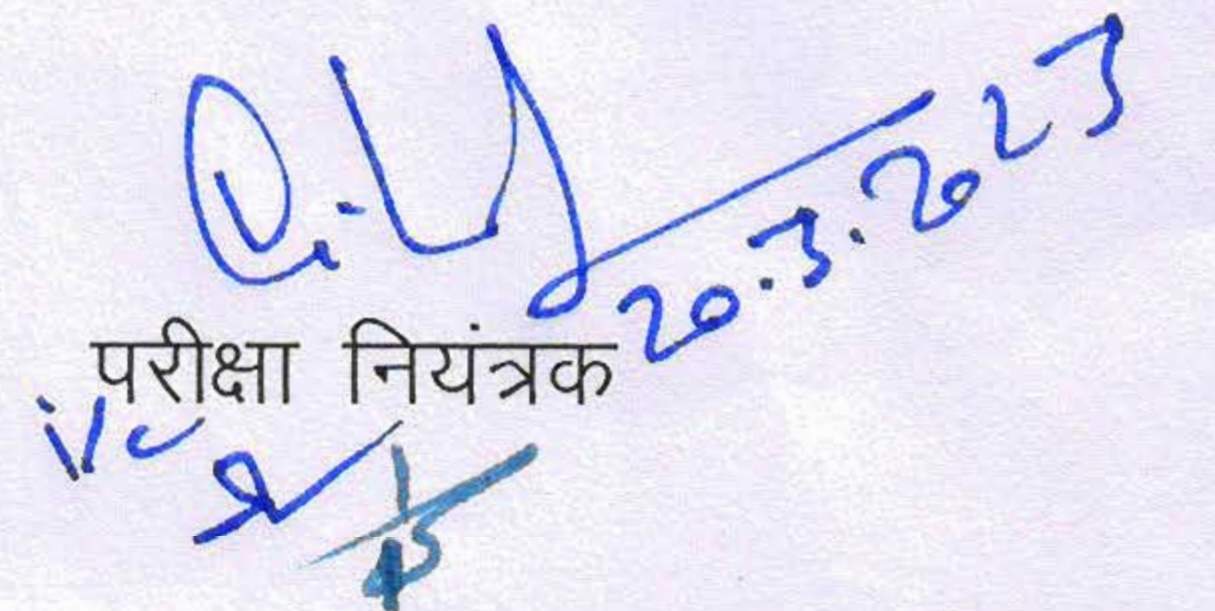 20.3.2023
परीक्षा नियंत्रक
i/c